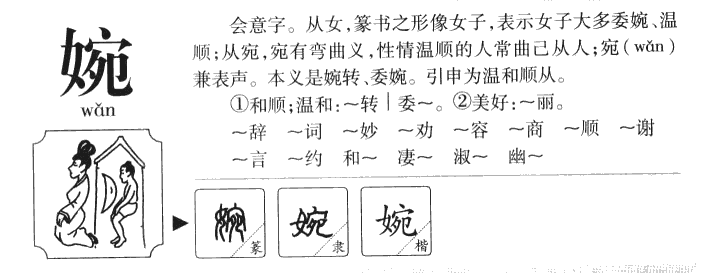 婉
wǎn
会意字。从女，篆书之形像女子，表示女子大多委婉、温
顺；从宛，宛有弯曲义，性情温顺的人常曲己从人；宛（wǎn）
兼表声。本义是婉转、委婉。引申为温和顺从。
①和顺；温和：～转｜委～。②美好：～丽。
～辞 ～词 ～妙 ～劝 ～容 ～商 ～顺 ～谢
～言 ～约 和～ 凄～ 淑～ 幽～
婉 篆 婉 隶 婉 楷